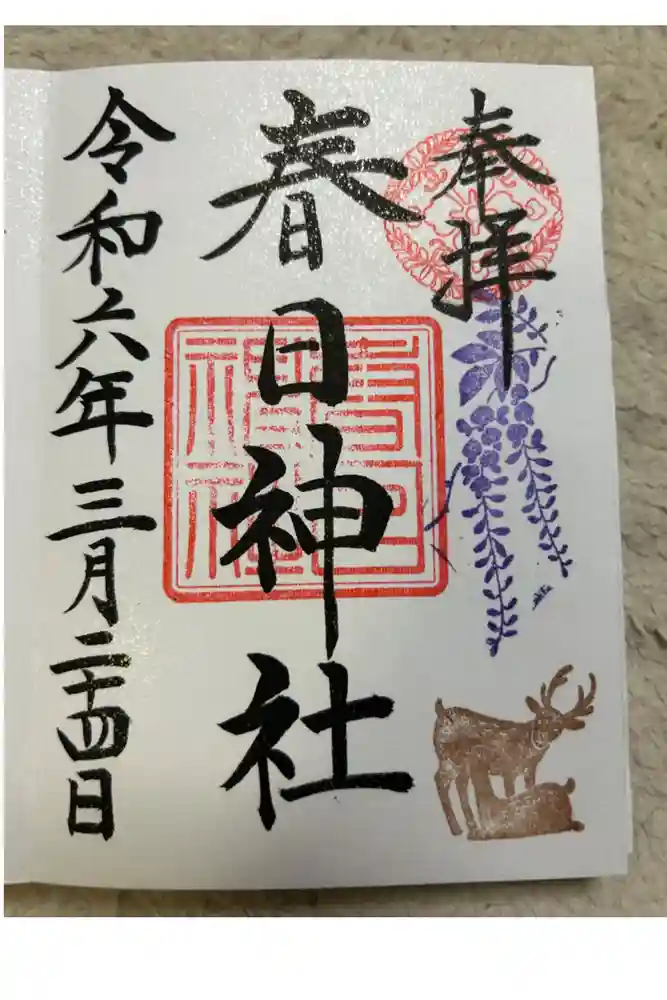 奉拝
春日神社
春日神社
令和六年三月二十四日